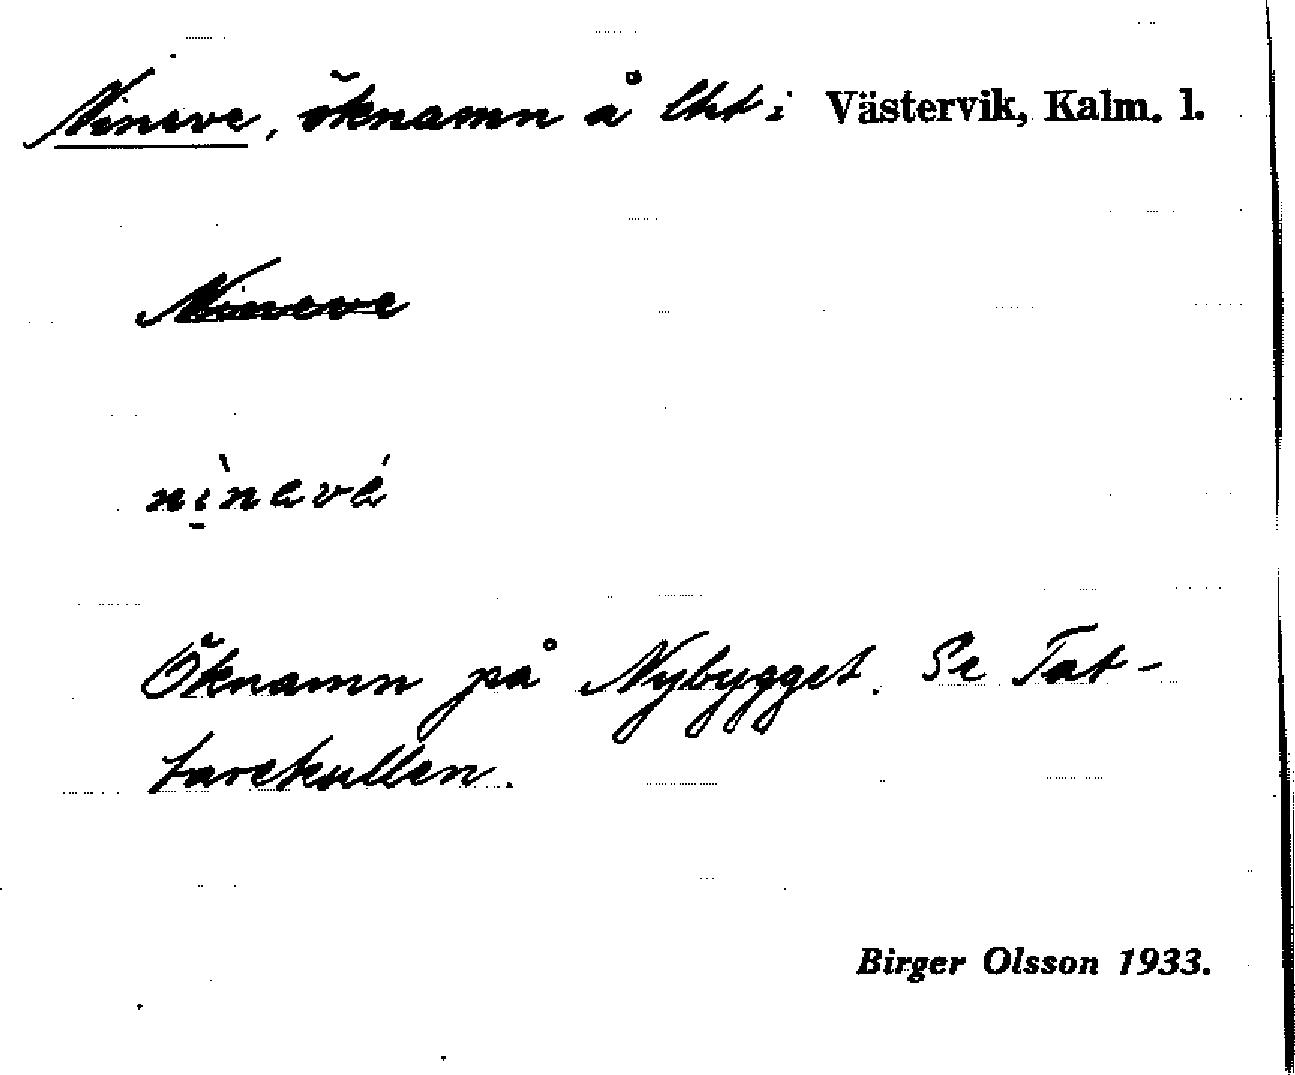 Nineve, öknamn å lht i Västervik, Kalm. l.
Nineve
nìnevé
Öknamn på Nybygget. Se Tat-
tarekullen.
Birger Olsson 1933.